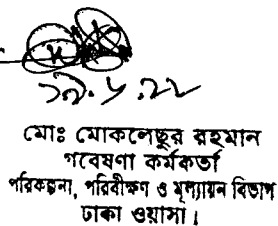 মোঃ মোকলেছুর রহমান
গবেষণা কর্মকর্তা
পরিকল্পনা, পরিবীক্ষণ ও মূল্যায়ন বিভাগ
ঢাকা ওয়াসা।